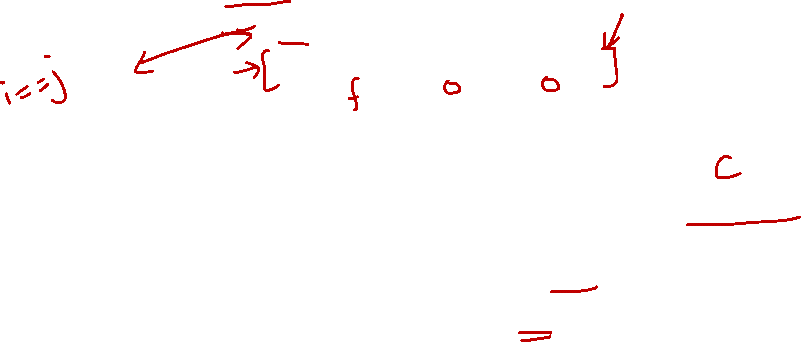 i==j [ f o o ]
c